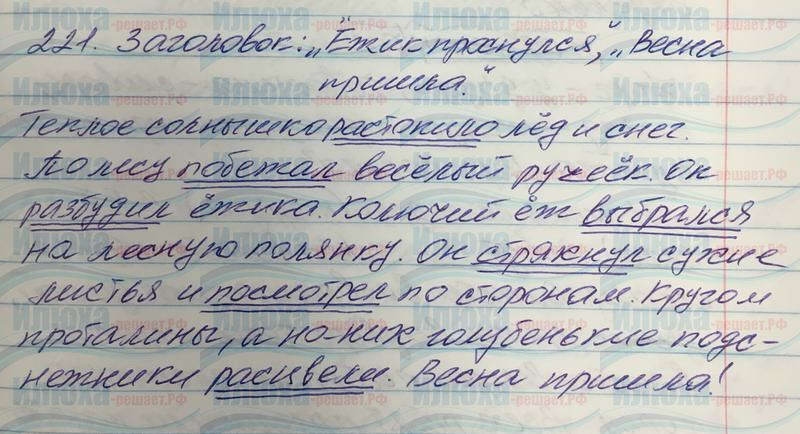 221. Заголовок: „Ёжик проснулся“, „Весна
пришла.“
Теплое солнышко растопило лёд и снег.
По лесу побежал весёлый ручеёк. Он
разбудил ёжика. Колючий ёж выбрался
на лесную полянку. Он стряхнул сухие
листья и посмотрел по сторонам. Кругом
проталины, а на них голубенькие подс-
нежники расцвели. Весна пришла!